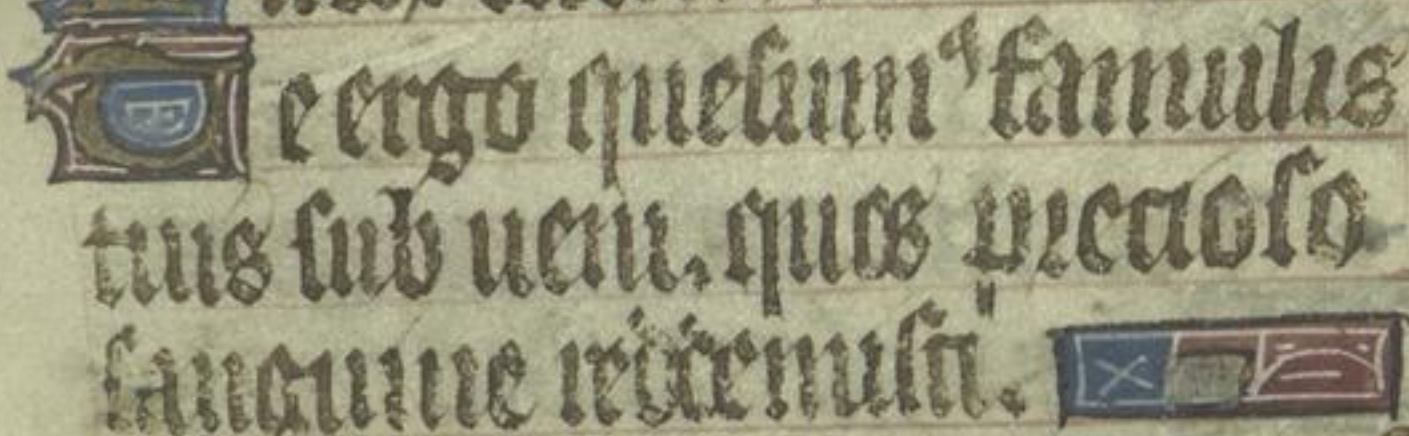 Te ergo quesumꝰ famulis
tuis sub ueni. quos precioso
sanguine redemisti.